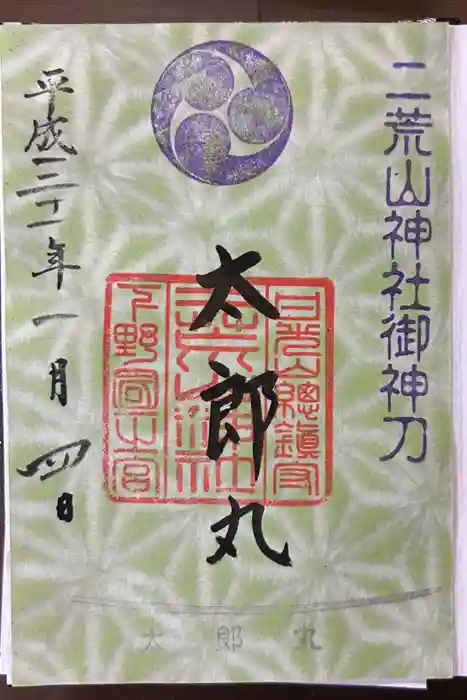 二荒山神社御神刀
日光山總鎮守
二荒山神社
下野國一之宮
太郎丸
平成三十一年一月四日
太郎丸